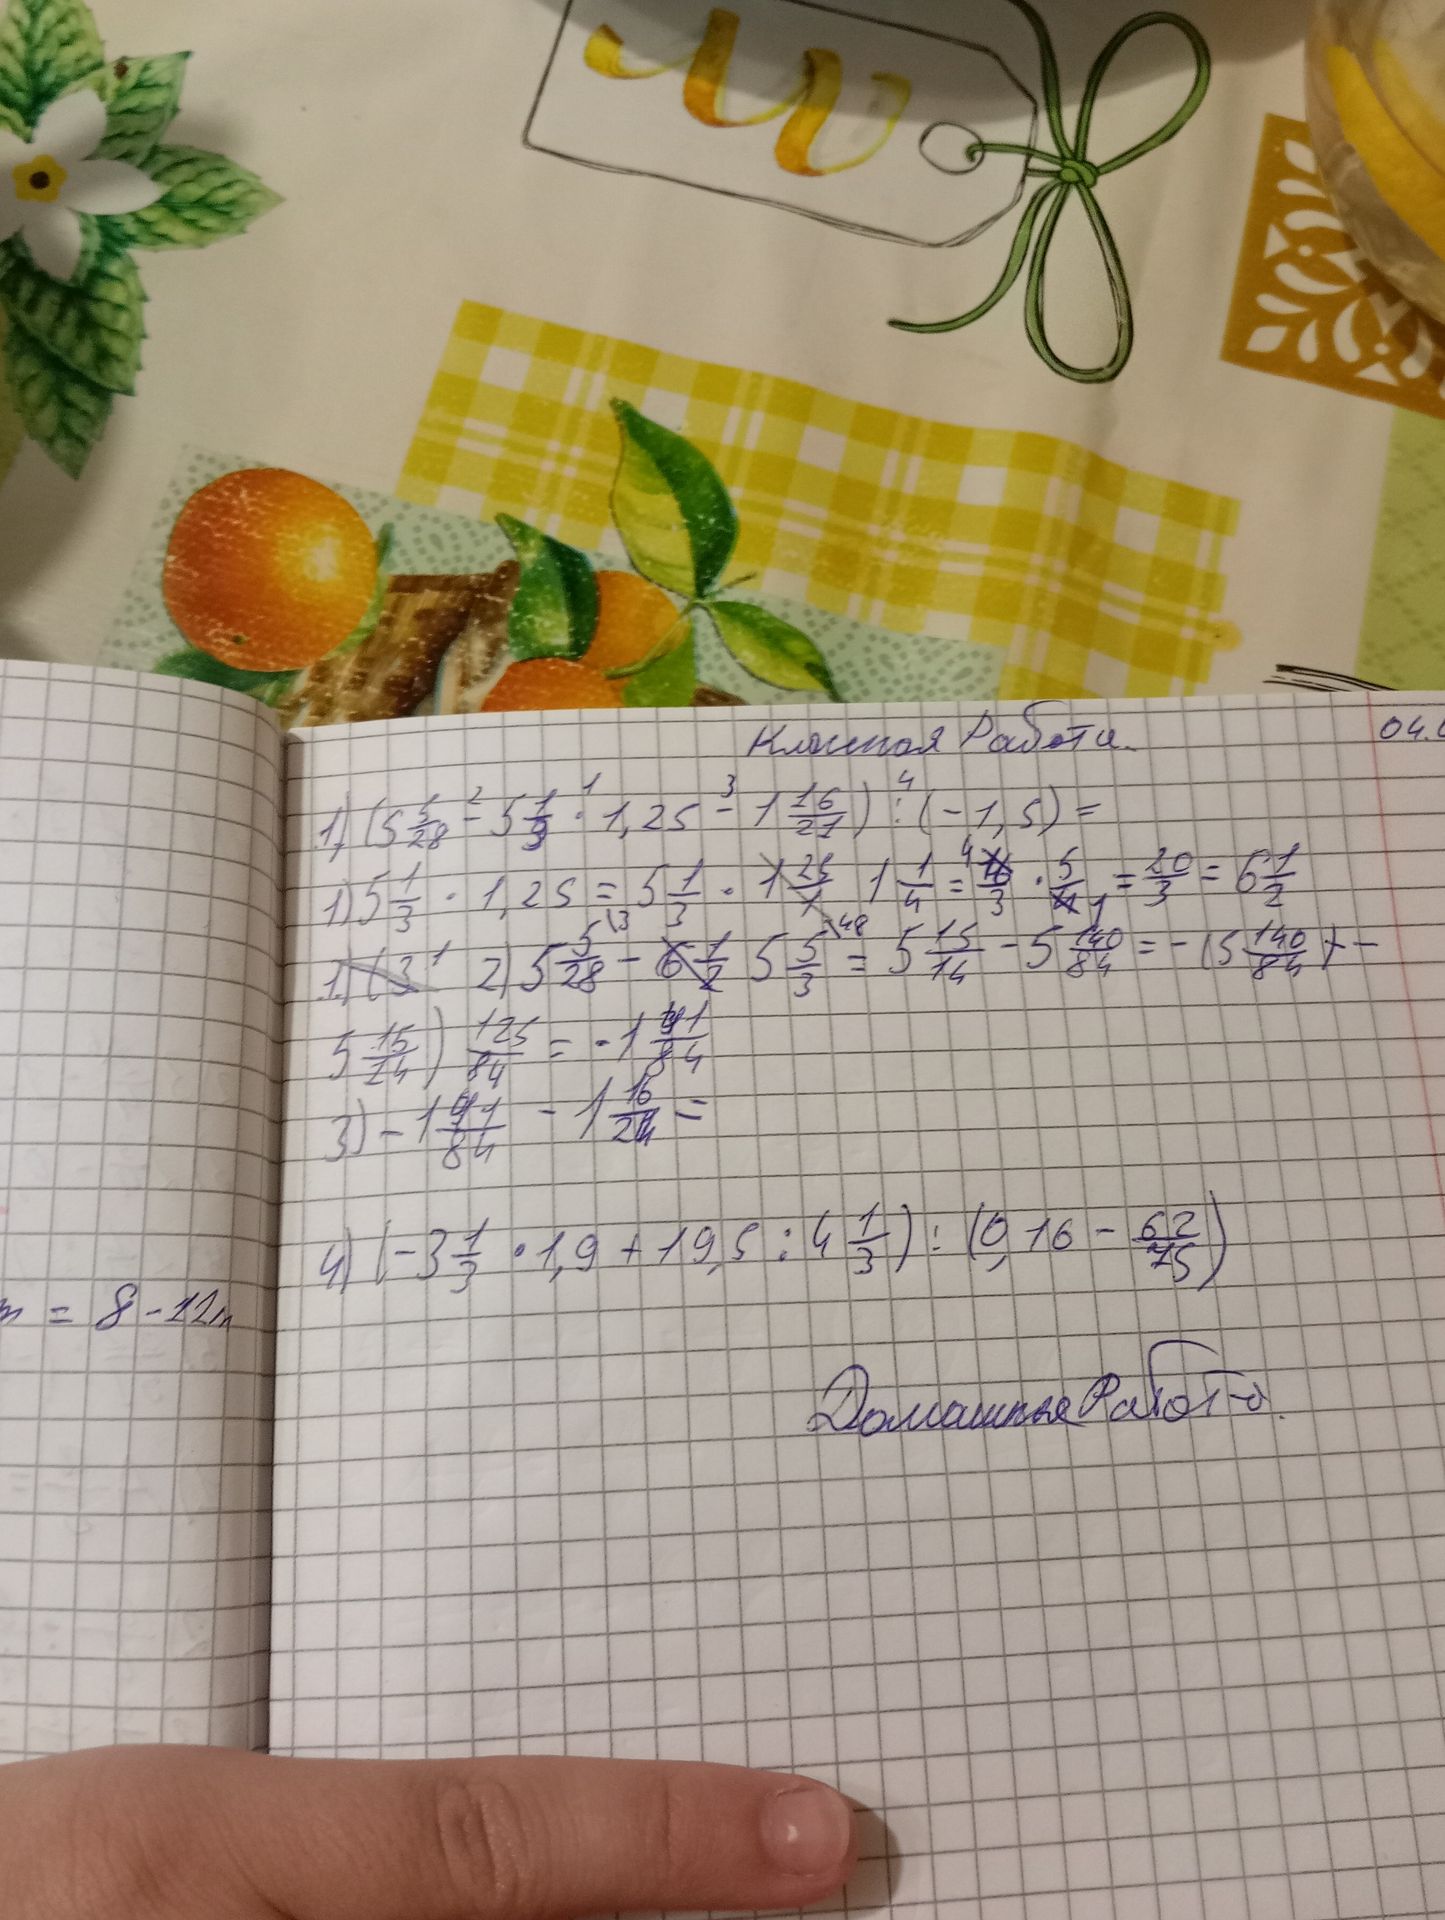 Классная Работа.
04.
1) (5 5/28 - 5 1/3 · 1,25 - 1 16/21) : (-1,5) =
1) 5 1/3 · 1,25 = 5 1/3 · 1 1/4 = 16/3 · 5/4 = 20/3 = 6 1/2
2) 5 5/28 - 5 5/3 = 5 15/14 - 5 140/84 = - (5 140/84 + -
5 15/24) 125/84 = - 1 41/84
3) - 1 41/84 - 1 16/21 =
4) (-3 1/3 · 1,9 + 19,5 : 4 1/3) : (0,16 - 62/75)
m = 8 - 12m
Домашняя Работа.